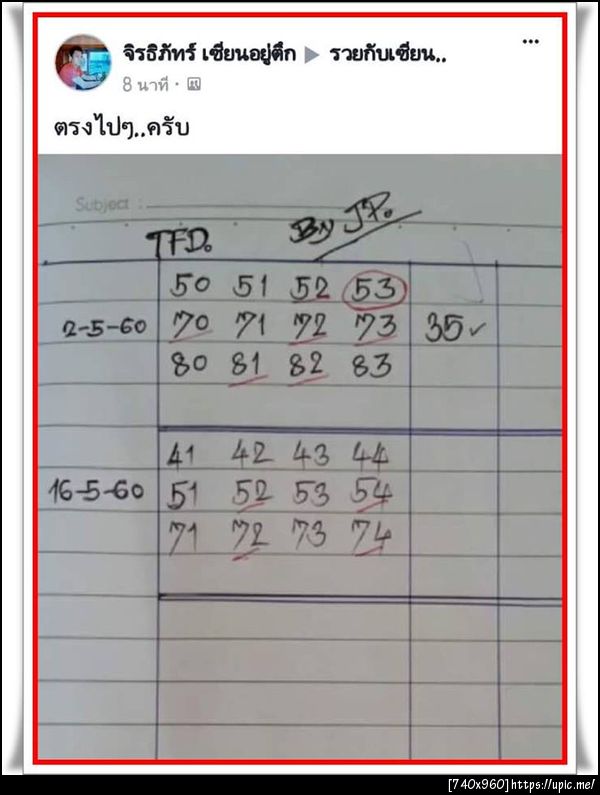 จิรธิภัทร์ เซียนอยู่ตึก ▶ รวยกับเซียน..
8 นาที ·
ตรงไปๆ..ครับ
Subject :
TFD. By J.P.
50 51 52 53
2-5-60 70 71 72 73 35✓
80 81 82 83
41 42 43 44
16-5-60 51 52 53 54
71 72 73 74
[740x960]https://upic.me/